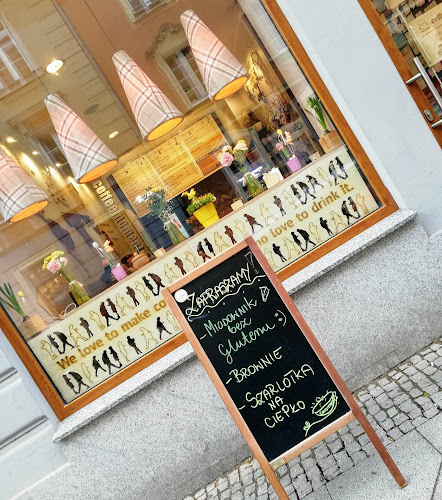 coffee
We love to make co
ho love to drink it.
ZAPRASZAMY!
- MIODOWNIK
bez
Glutenu :)
- BROWNIE
- SZARLOTKA
NA
CIEPŁO